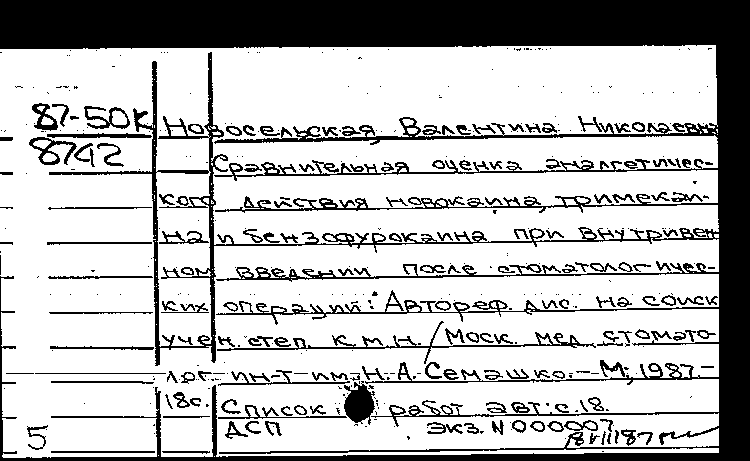 87-50К Новосельская, Валентина Николаевна
8742 Сравнительная оценка аналгетичес-
кого действия новокаина, тримекаи-
на и бензофурокаина при внутривен
ном введении после стоматологичес-
ких операций: Автореф. дис. на соиск
учен. степ. к.м.н. / Моск. мед. стомато-
лог. ин-т им. Н.А. Семашко. - М., 1987. -
18с. Список работ авт.: с.18.
ДСП экз. N 000007
5 18 VIII 87